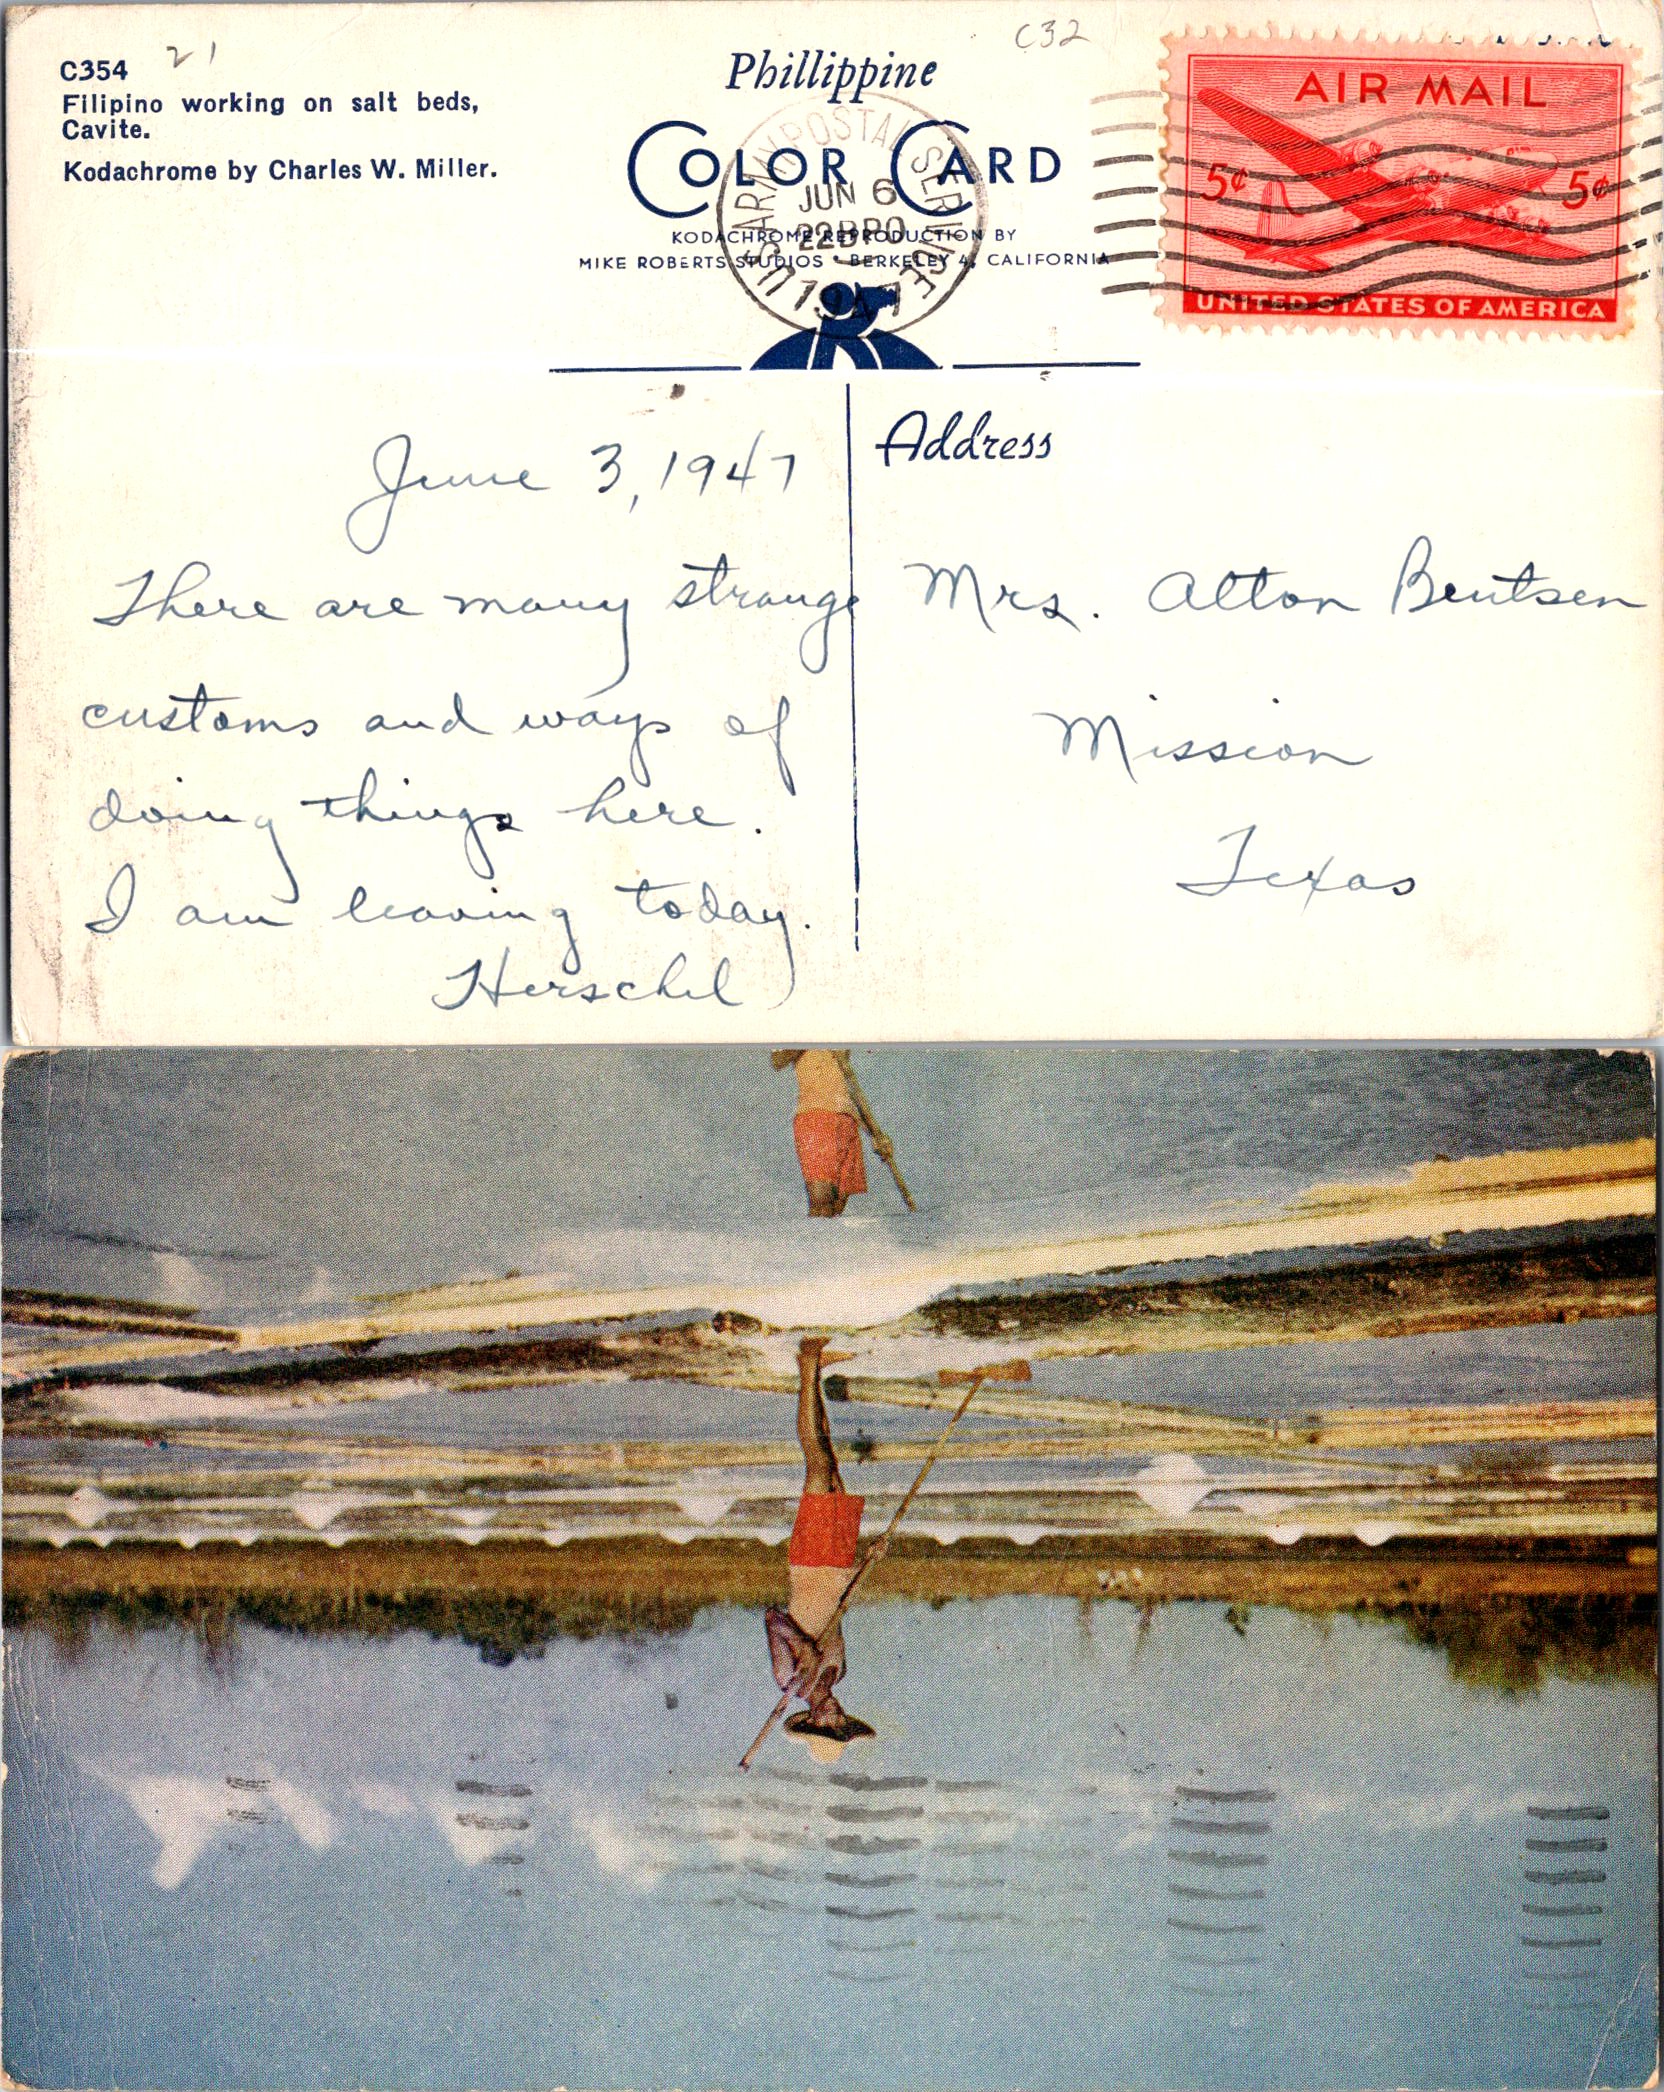 C354
21
Filipino working on salt beds,
Cavite.
Kodachrome by Charles W. Miller.
Phillippine
COLOR CARD
KODACHROME REPRODUCTION BY
MIKE ROBERTS STUDIOS - BERKELEY 4, CALIFORNIA
C32
U.S. ARMY POSTAL SERVICE
JUN 6
1947
AIR MAIL
5¢ 5¢
UNITED STATES OF AMERICA
June 3, 1947
There are many strange
customs and ways of
doing things here.
I am leaving today.
Herschel
Address
Mrs. Alton Bentsen
Mission
Texas